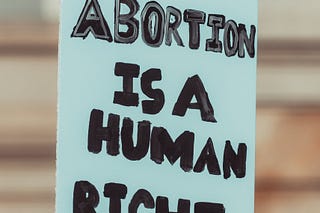 ABORTION
IS A
HUMAN
RIGHT